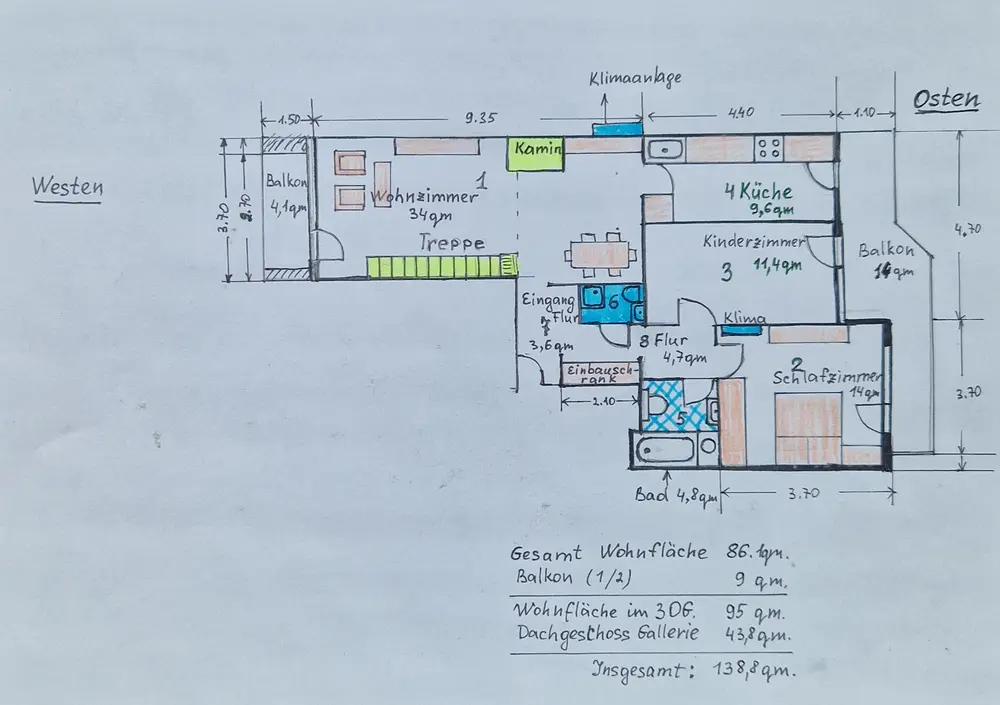 Klimaanlage
Osten
1.50
9.35
4.40
1.10
Kamin
Westen
Balkon
4,1qm
Wohnzimmer
1
34qm
4 Küche
9,6qm
3.70
2.70
Treppe
Kinderzimmer
11,4qm
3
Balkon
14qm
4.70
Eingang
Flur
7
3,6qm
6
Klima
8 Flur
4,7qm
Einbausch-
rank
2
Schlafzimmer
14qm
2.10
5
3.70
Bad 4,8qm
3.70
Gesamt Wohnfläche 86.1qm.
Balkon (1/2) 9 qm.
Wohnfläche im 3OG. 95 qm.
Dachgeschoss Gallerie 43,8qm.
Insgesamt: 138,8qm.